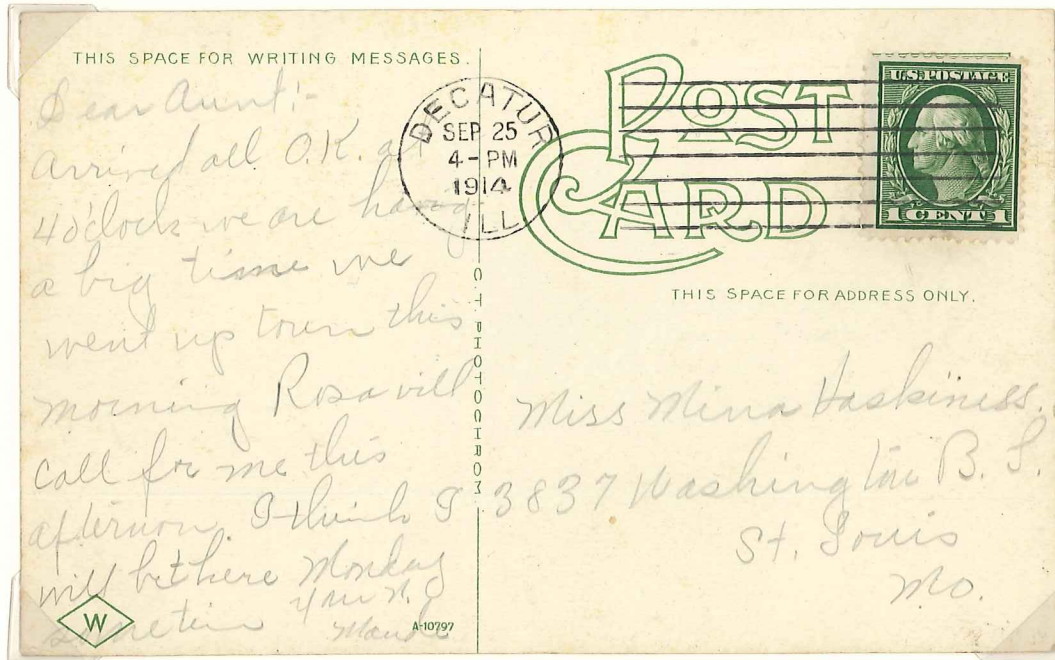 THIS SPACE FOR WRITING MESSAGES.
Dear Aunt:-
Arrived all O.K. at
4 o'clock we are having
a big time we
went up town this
morning Rosa will
call for me this
afternoon I think I
will be there Monday
sometim
Maude
W
A-10797
C.T. PHOTOCHROM
DECATUR
SEP 25
4-PM
1914
ILL
POST
CARD
U.S. POSTAGE
1 CENT 1
THIS SPACE FOR ADDRESS ONLY.
Miss Minna Haskiness.
3837 Washington B.
St. Louis
Mo.